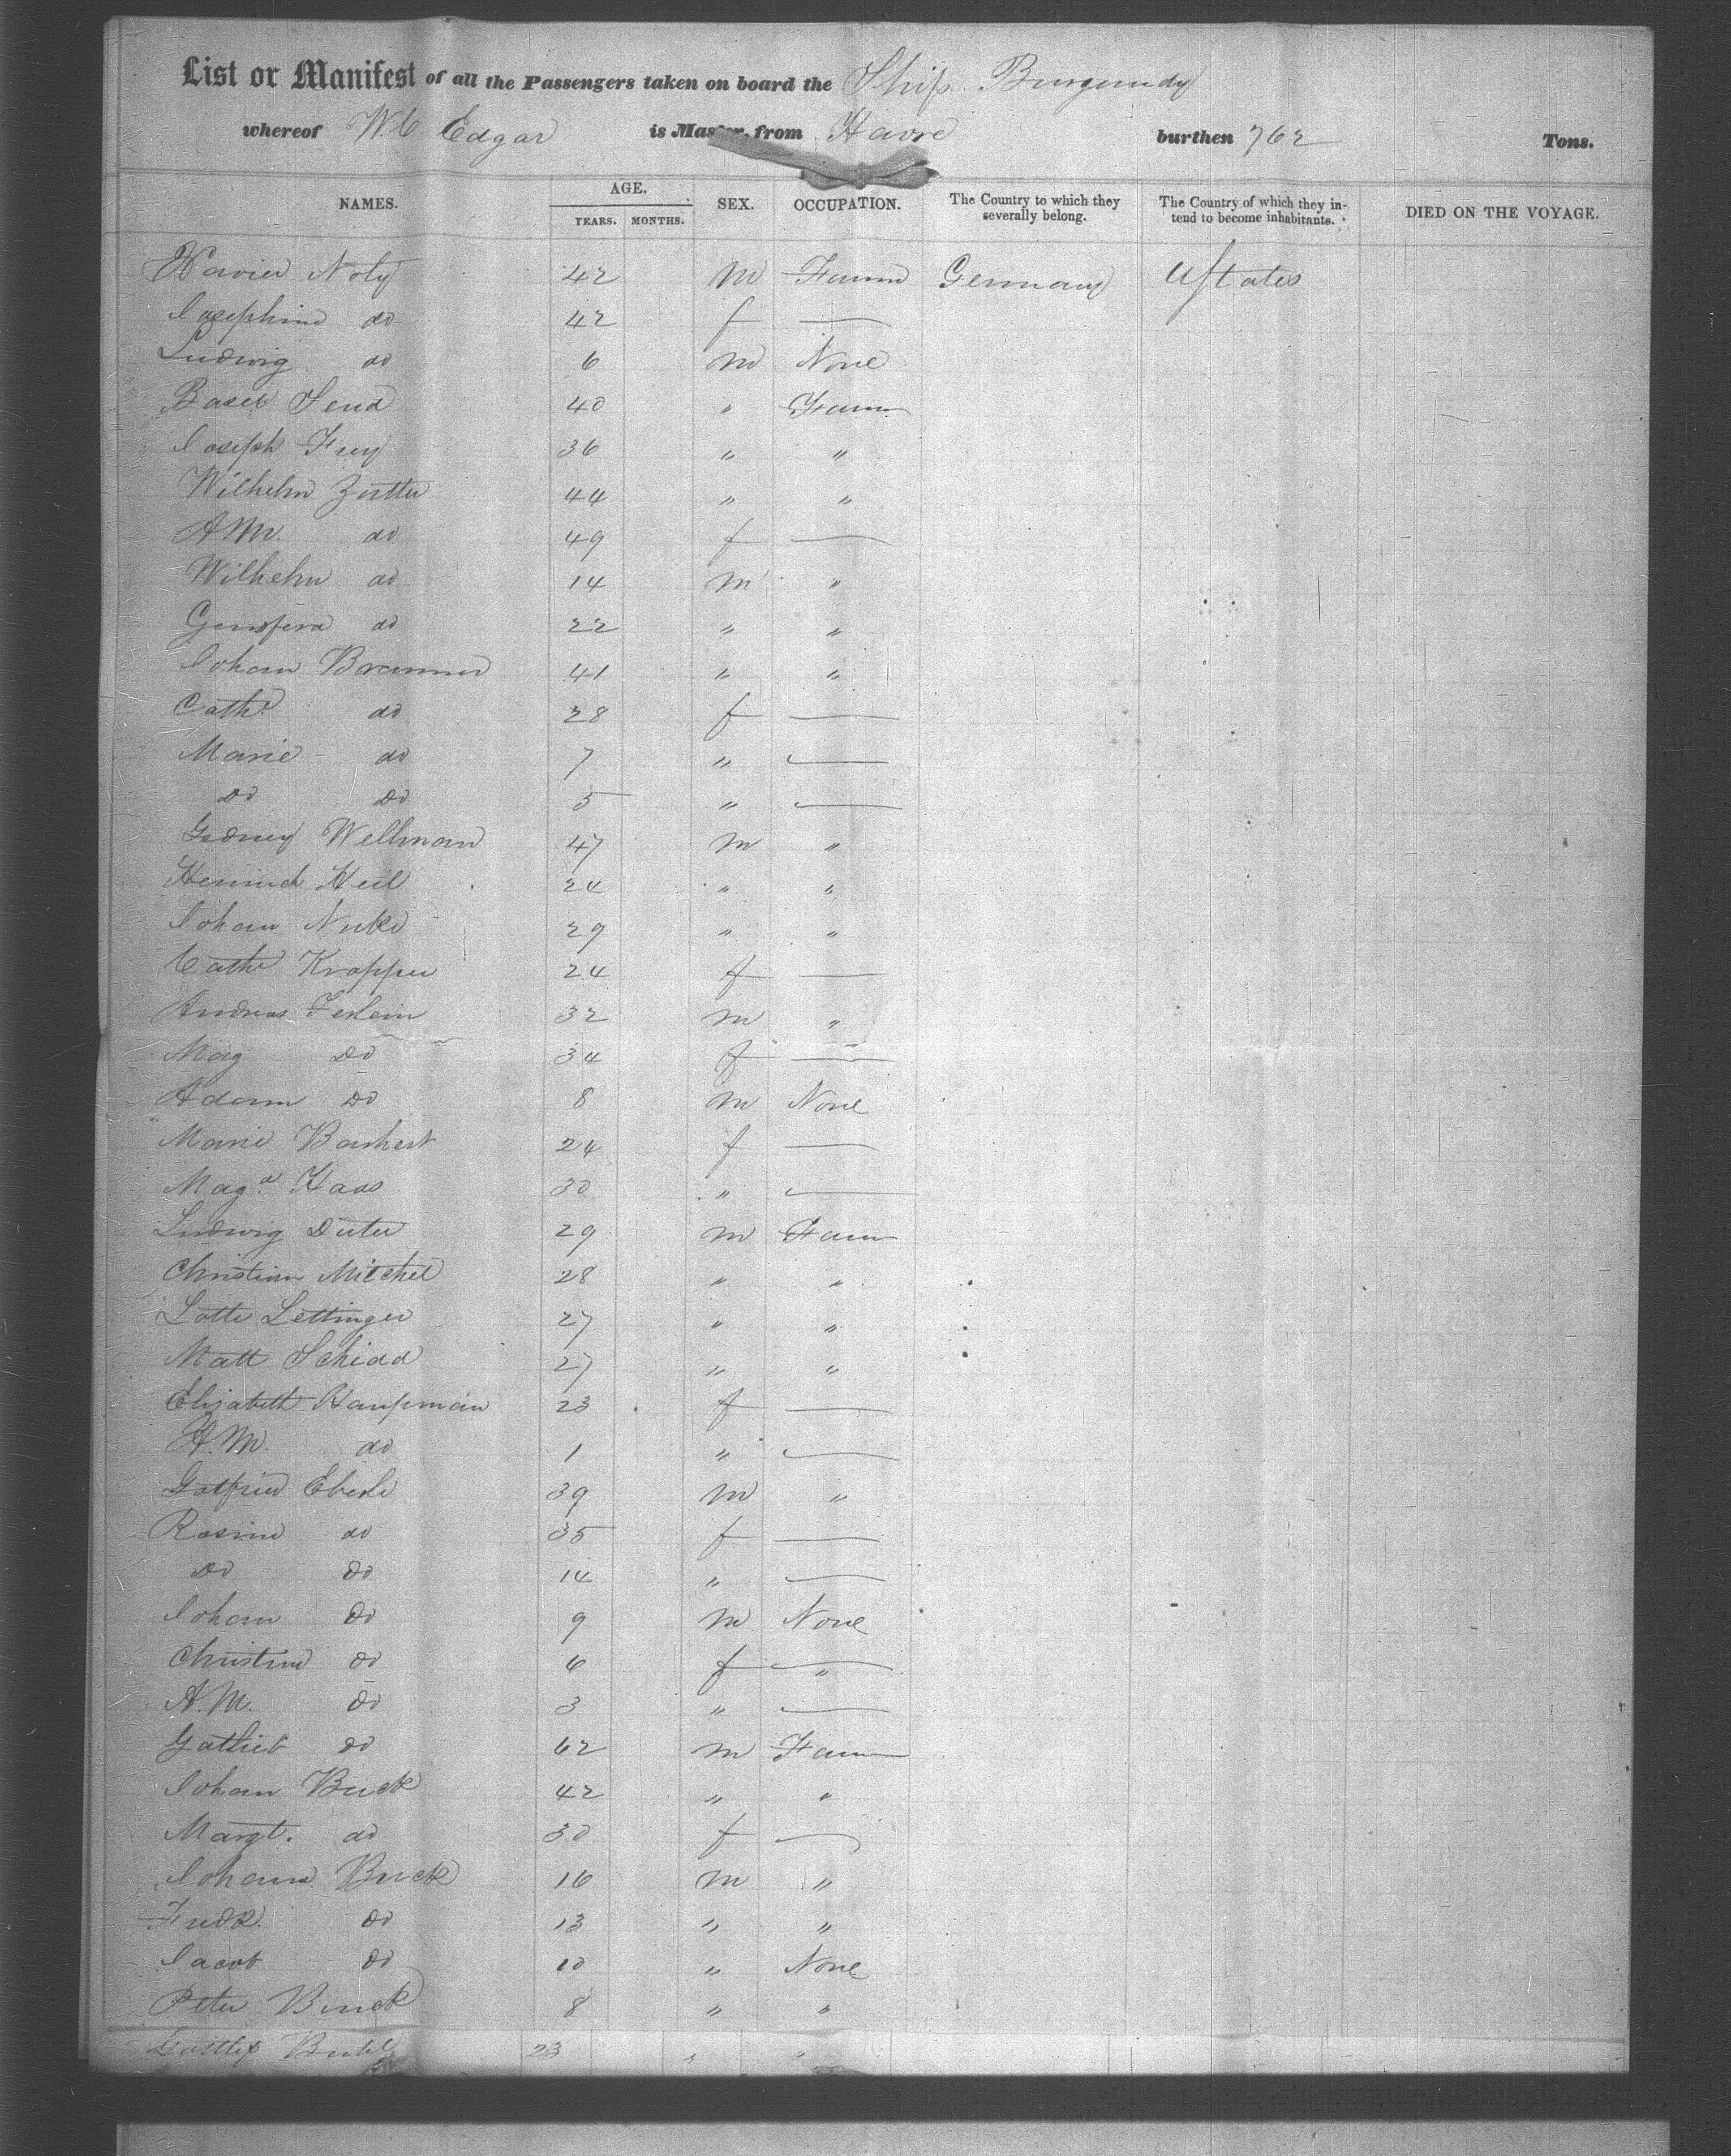 List or Manifest of all the Passengers taken on board the Ship Burgundy
whereof W. C. Edgar is Master, from Havre burthen 762 Tons.
NAMES. AGE. SEX. OCCUPATION. The Country to which they severally belong. The Country of which they intend to become inhabitants. DIED ON THE VOYAGE.
YEARS. MONTHS.
Xavier Noly 42 m Farmr Germany UStates
Josephine do 42 f —
Ludwig do 6 m None
Send 40 " Farmr
Joseph Frey 36 " "
Wilhelm Zutter 44 " "
A.M. do 49 f —
Wilhelm do 14 m "
do 22 " "
Johan Brammer 41 " "
Cathe do 28 f —
Marie do 7 " —
Do Do 5 " —
Wellman 47 m "
Heinrich Heil 24 " "
Johan 29 " "
Cathe Kropper 24 f —
Andreas 32 m "
Mag Do 34 f —
Adam Do 8 m None
Marie 24 f —
Maga Haas 30 " —
Ludwig Dieter 29 m Farmr
Christian Mitchel 28 " "
Lotte Lettinger 27 " "
Matt Schidd 27 " "
Elizabeth Haupman 23 f —
A.M. do 1 " —
Gotfried Eberle 39 m "
Rosine do 35 f —
Do Do 14 " —
Johan Do 9 m None
Christine Do 6 f — "
A.M. Do 3 " —
Gotlieb Do 62 m Farmr
Johan Buck 42 " "
Margt. do 30 f —
Johann Buck 16 m "
Fredk. Do 13 " "
Jacob Do 10 " None
Peter Buck 8 " "
23 " "